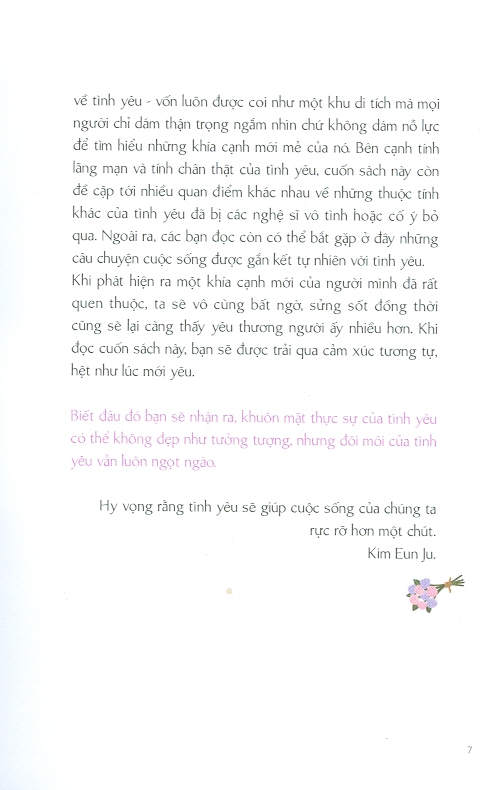 về tình yêu - vốn luôn được coi như một khu di tích mà mọi
người chỉ dám thận trọng ngắm nhìn chứ không dám nỗ lực
để tìm hiểu những khía cạnh mới mẻ của nó. Bên cạnh tính
lãng mạn và tính chân thật của tình yêu, cuốn sách này còn
đề cập tới nhiều quan điểm khác nhau về những thuộc tính
khác của tình yêu đã bị các nghệ sĩ vô tình hoặc cố ý bỏ
qua. Ngoài ra, các bạn đọc còn có thể bắt gặp ở đây những
câu chuyện cuộc sống được gắn kết tự nhiên với tình yêu.
Khi phát hiện ra một khía cạnh mới của người mình đã rất
quen thuộc, ta sẽ vô cùng bất ngờ, sửng sốt đồng thời
cũng sẽ lại càng thấy yêu thương người ấy nhiều hơn. Khi
đọc cuốn sách này, bạn sẽ được trải qua cảm xúc tương tự,
hệt như lúc mới yêu.
Biết đâu đó bạn sẽ nhận ra, khuôn mặt thực sự của tình yêu
có thể không đẹp như tưởng tượng, nhưng đôi môi của tình
yêu vẫn luôn ngọt ngào.
Hy vọng rằng tình yêu sẽ giúp cuộc sống của chúng ta
rực rỡ hơn một chút.
Kim Eun Ju.
7